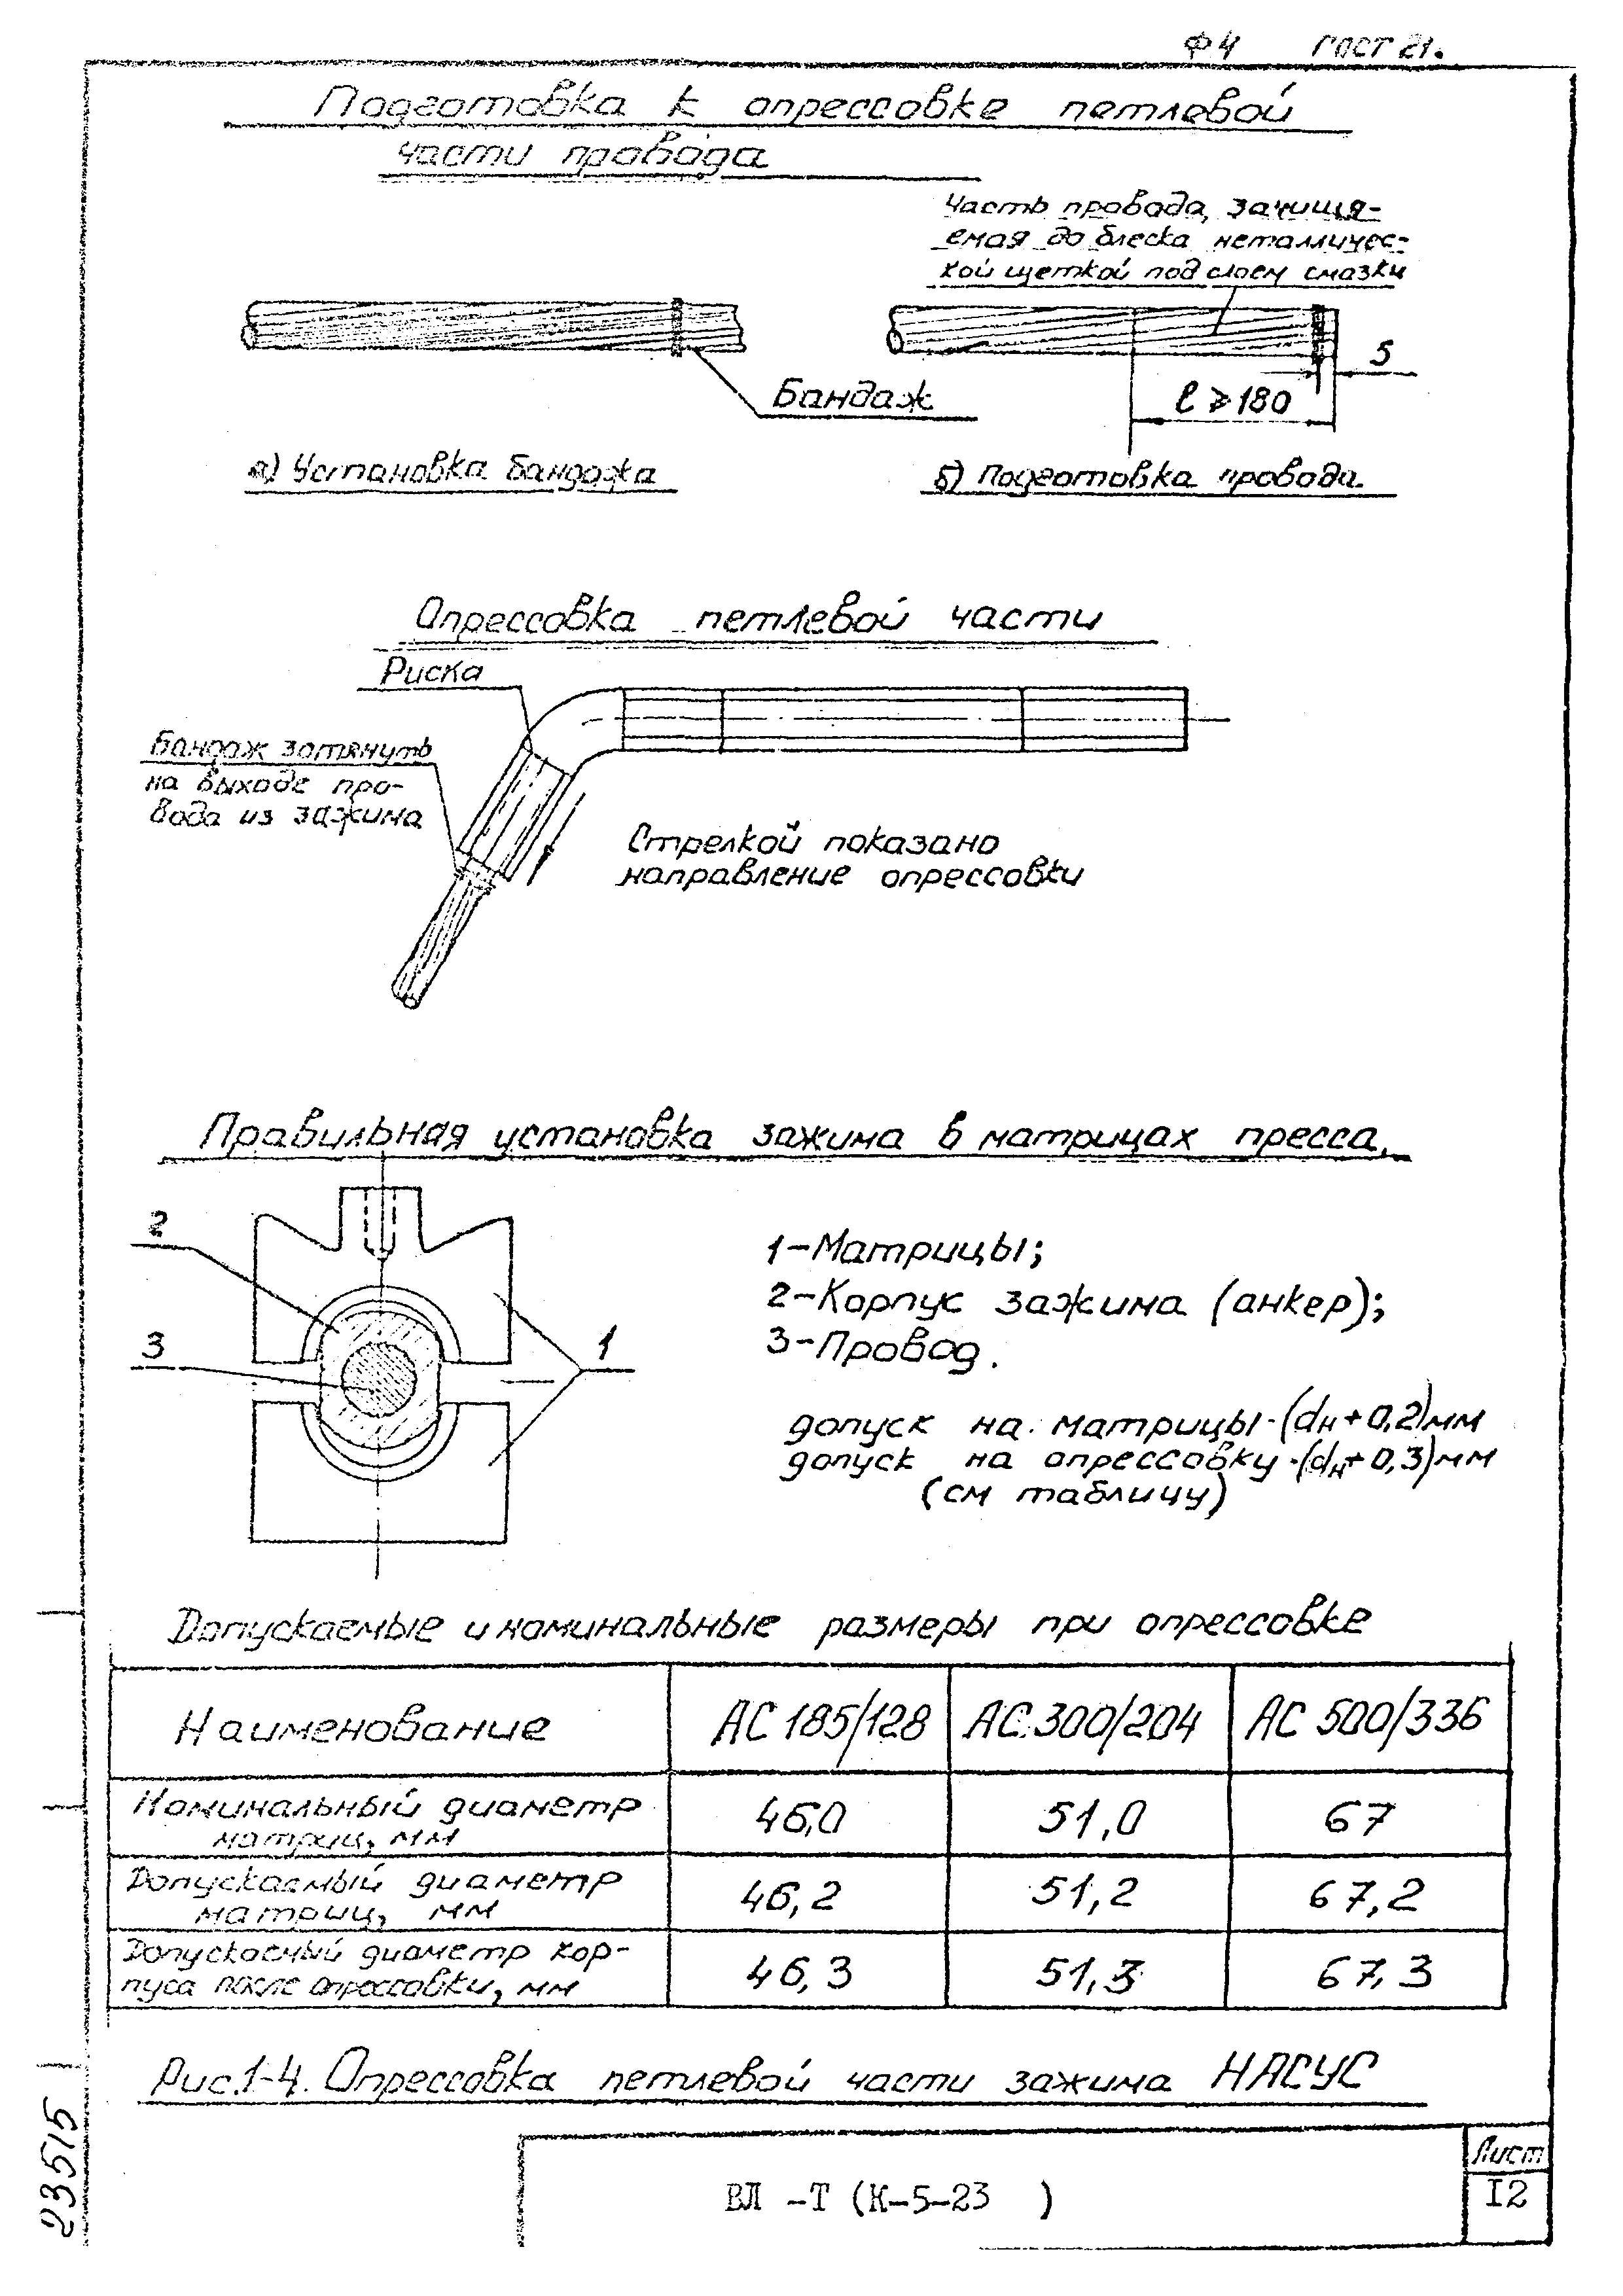 Ф4 ГОСТ 21.
Подготовка к опрессовке петлевой
части провода
Часть провода, зачища-
емая до блеска металличес-
кой щеткой под слоем смазки
5
Бандаж
ℓ ≥ 180
а) Установка бандажа
б) Подготовка провода
Опрессовка петлевой части
Риска
Бандаж затянуть
на выходе про-
вода из зажима
Стрелкой показано
направление опрессовки
Правильная установка зажима в матрицах пресса.
2
3
1
1-Матрицы;
2-Корпус зажима (анкер);
3-Провод.
допуск на матрицы-(dн+0,2)мм
допуск на опрессовку-(dн+0,3)мм
(см таблицу)
Допускаемые и номинальные размеры при опрессовке
Наименование АС 185/128 АС 300/204 АС 500/336
Номинальный диаметр
матриц, мм 46,0 51,0 67
Допускаемый диаметр
матриц, мм 46,2 51,2 67,2
Допускаемый диаметр кор-
пуса после опрессовки, мм 46,3 51,3 67,3
Рис.1-4. Опрессовка петлевой части зажима НАСУС
23515
ВЛ -Т (К-5-23 )
Лист
12